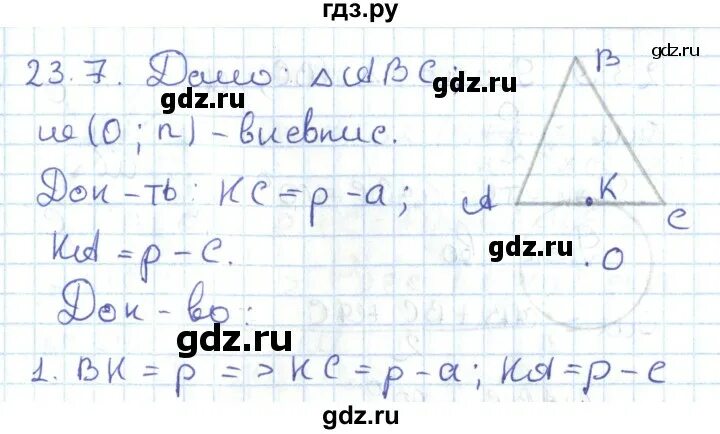 гдз.ру
23.7. Дано: △ABC;
gdz.ru
gdz.ru
gdz.ru
B
ω(O; r) – вневпис.
Док-ть: KC = p – a;
A
K
C
KA = p – c.
gdz.ru
O
Док-во:
gdz.ru
1. BK = p => KC = p – a; KA = p – c
gdz.ru